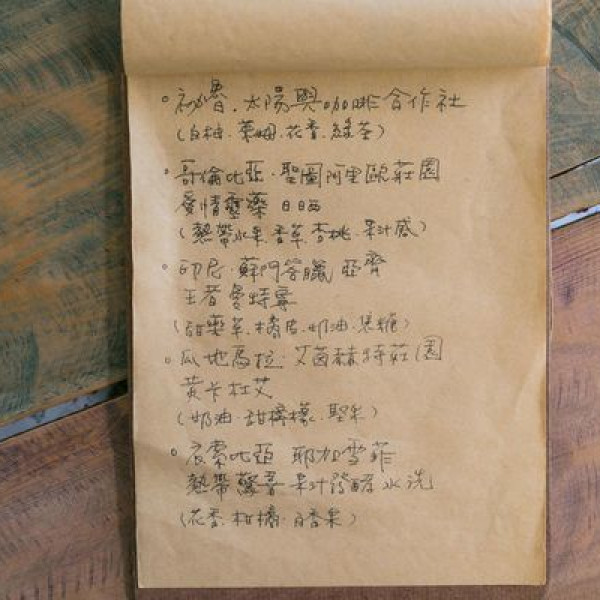 。祕魯.太陽與咖啡合作社
(白柚.萊姆.花香.綠茶)
。哥倫比亞.聖圖阿里歐莊園
愛情靈藥 日晒
(熱帶水果.香草.杏桃.果汁感)
。印尼.蘇門答臘 亞齊
王者曼特寧
(甜藥草.橘皮.奶油.焦糖)
。瓜地馬拉.艾茵赫特莊園
黃卡杜艾
(奶油.甜檸檬.堅果)
。衣索比亞 耶加雪菲
熱帶驚喜 果汁發酵水洗
(花香.柑橘.百香果)